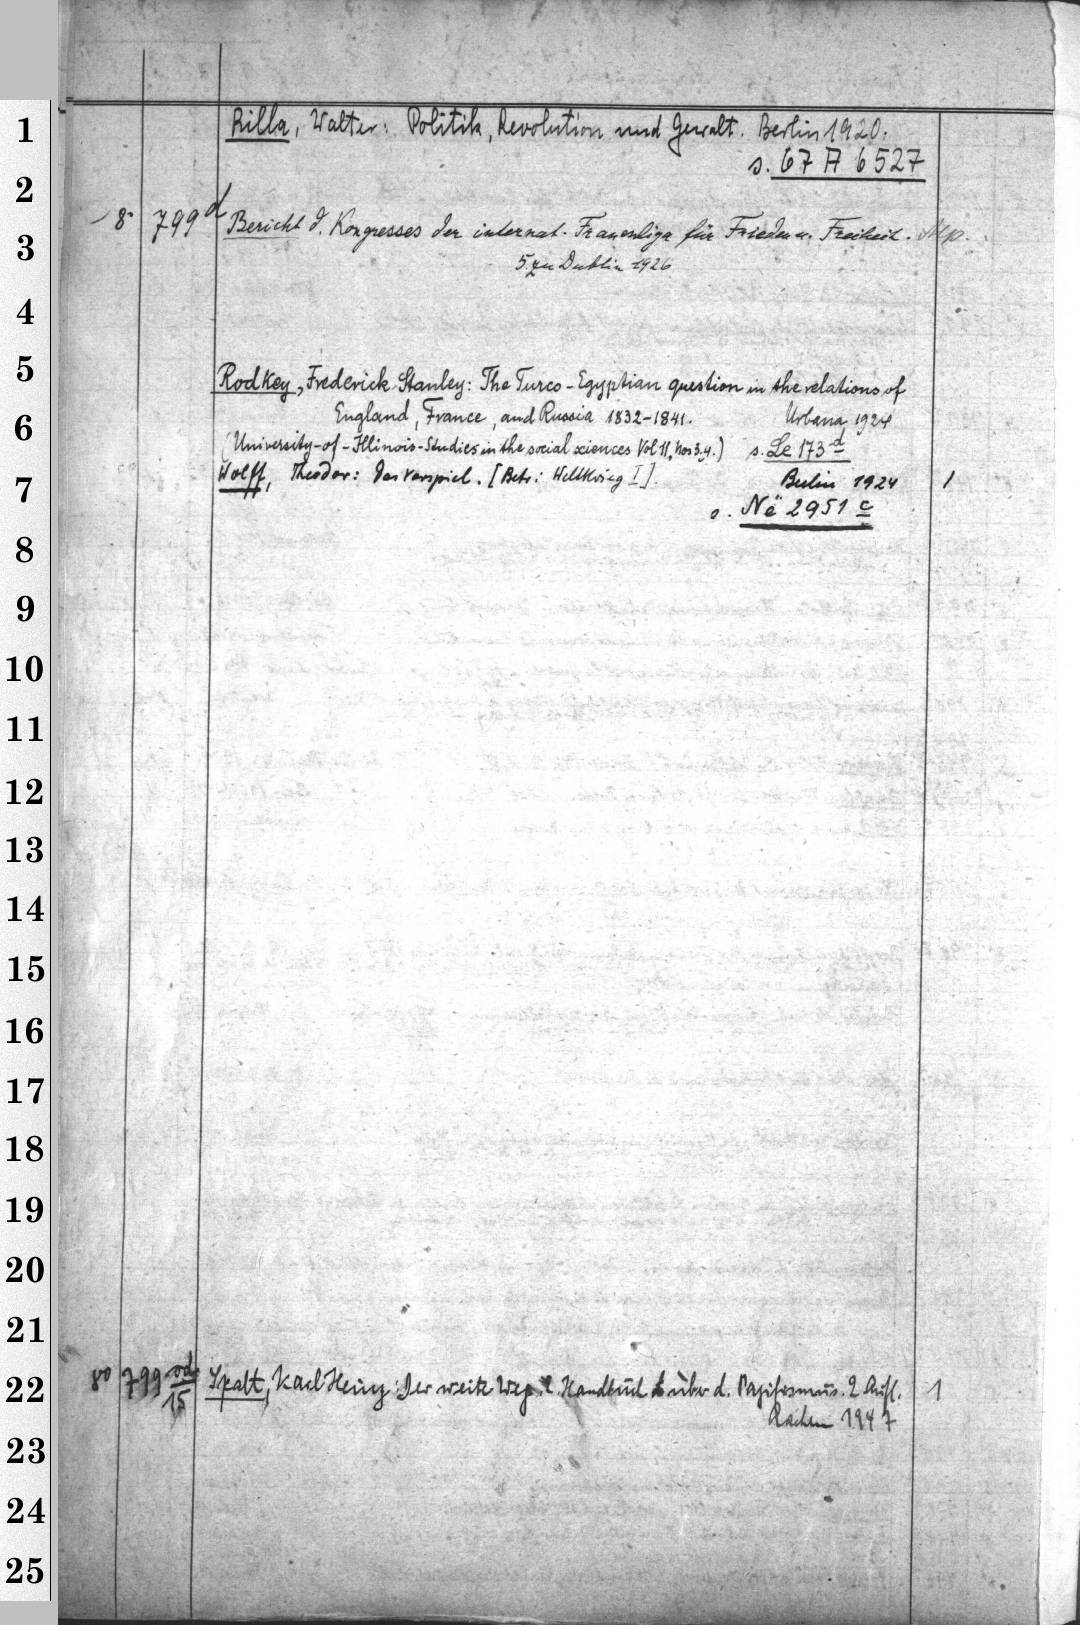 1 Rilla, Walter: Politik, Revolution und Gewalt. Berlin 1920.
s. 67 A 6527
2
8° 799 d Bericht d. Kongresses der internat. Frauenliga für Frieden u. Freiheit.
3
5. zu Dublin 1926
4
5 Rodkey, Frederick Stanley: The Turco-Egyptian question in the relations of
England, France, and Russia 1832-1841. Urbana 1924
6
(University-of-Illinois-Studies in the social sciences Vol 11, Nos 3.4.) s. Le 173 d
7 Wolff, Theodor: Das Vorspiel. [Betr.: Weltkrieg I]. Berlin 1924 1
s. Në 2951 c
8
9
10
11
12
13
14
15
16
17
18
19
20
21
22 8° 799 od/15 Spalt, Karl Heinz: Der weite Weg. Handbuch über d. Pazifismus. 2. Aufl. 1
Aachen 1947
23
24
25